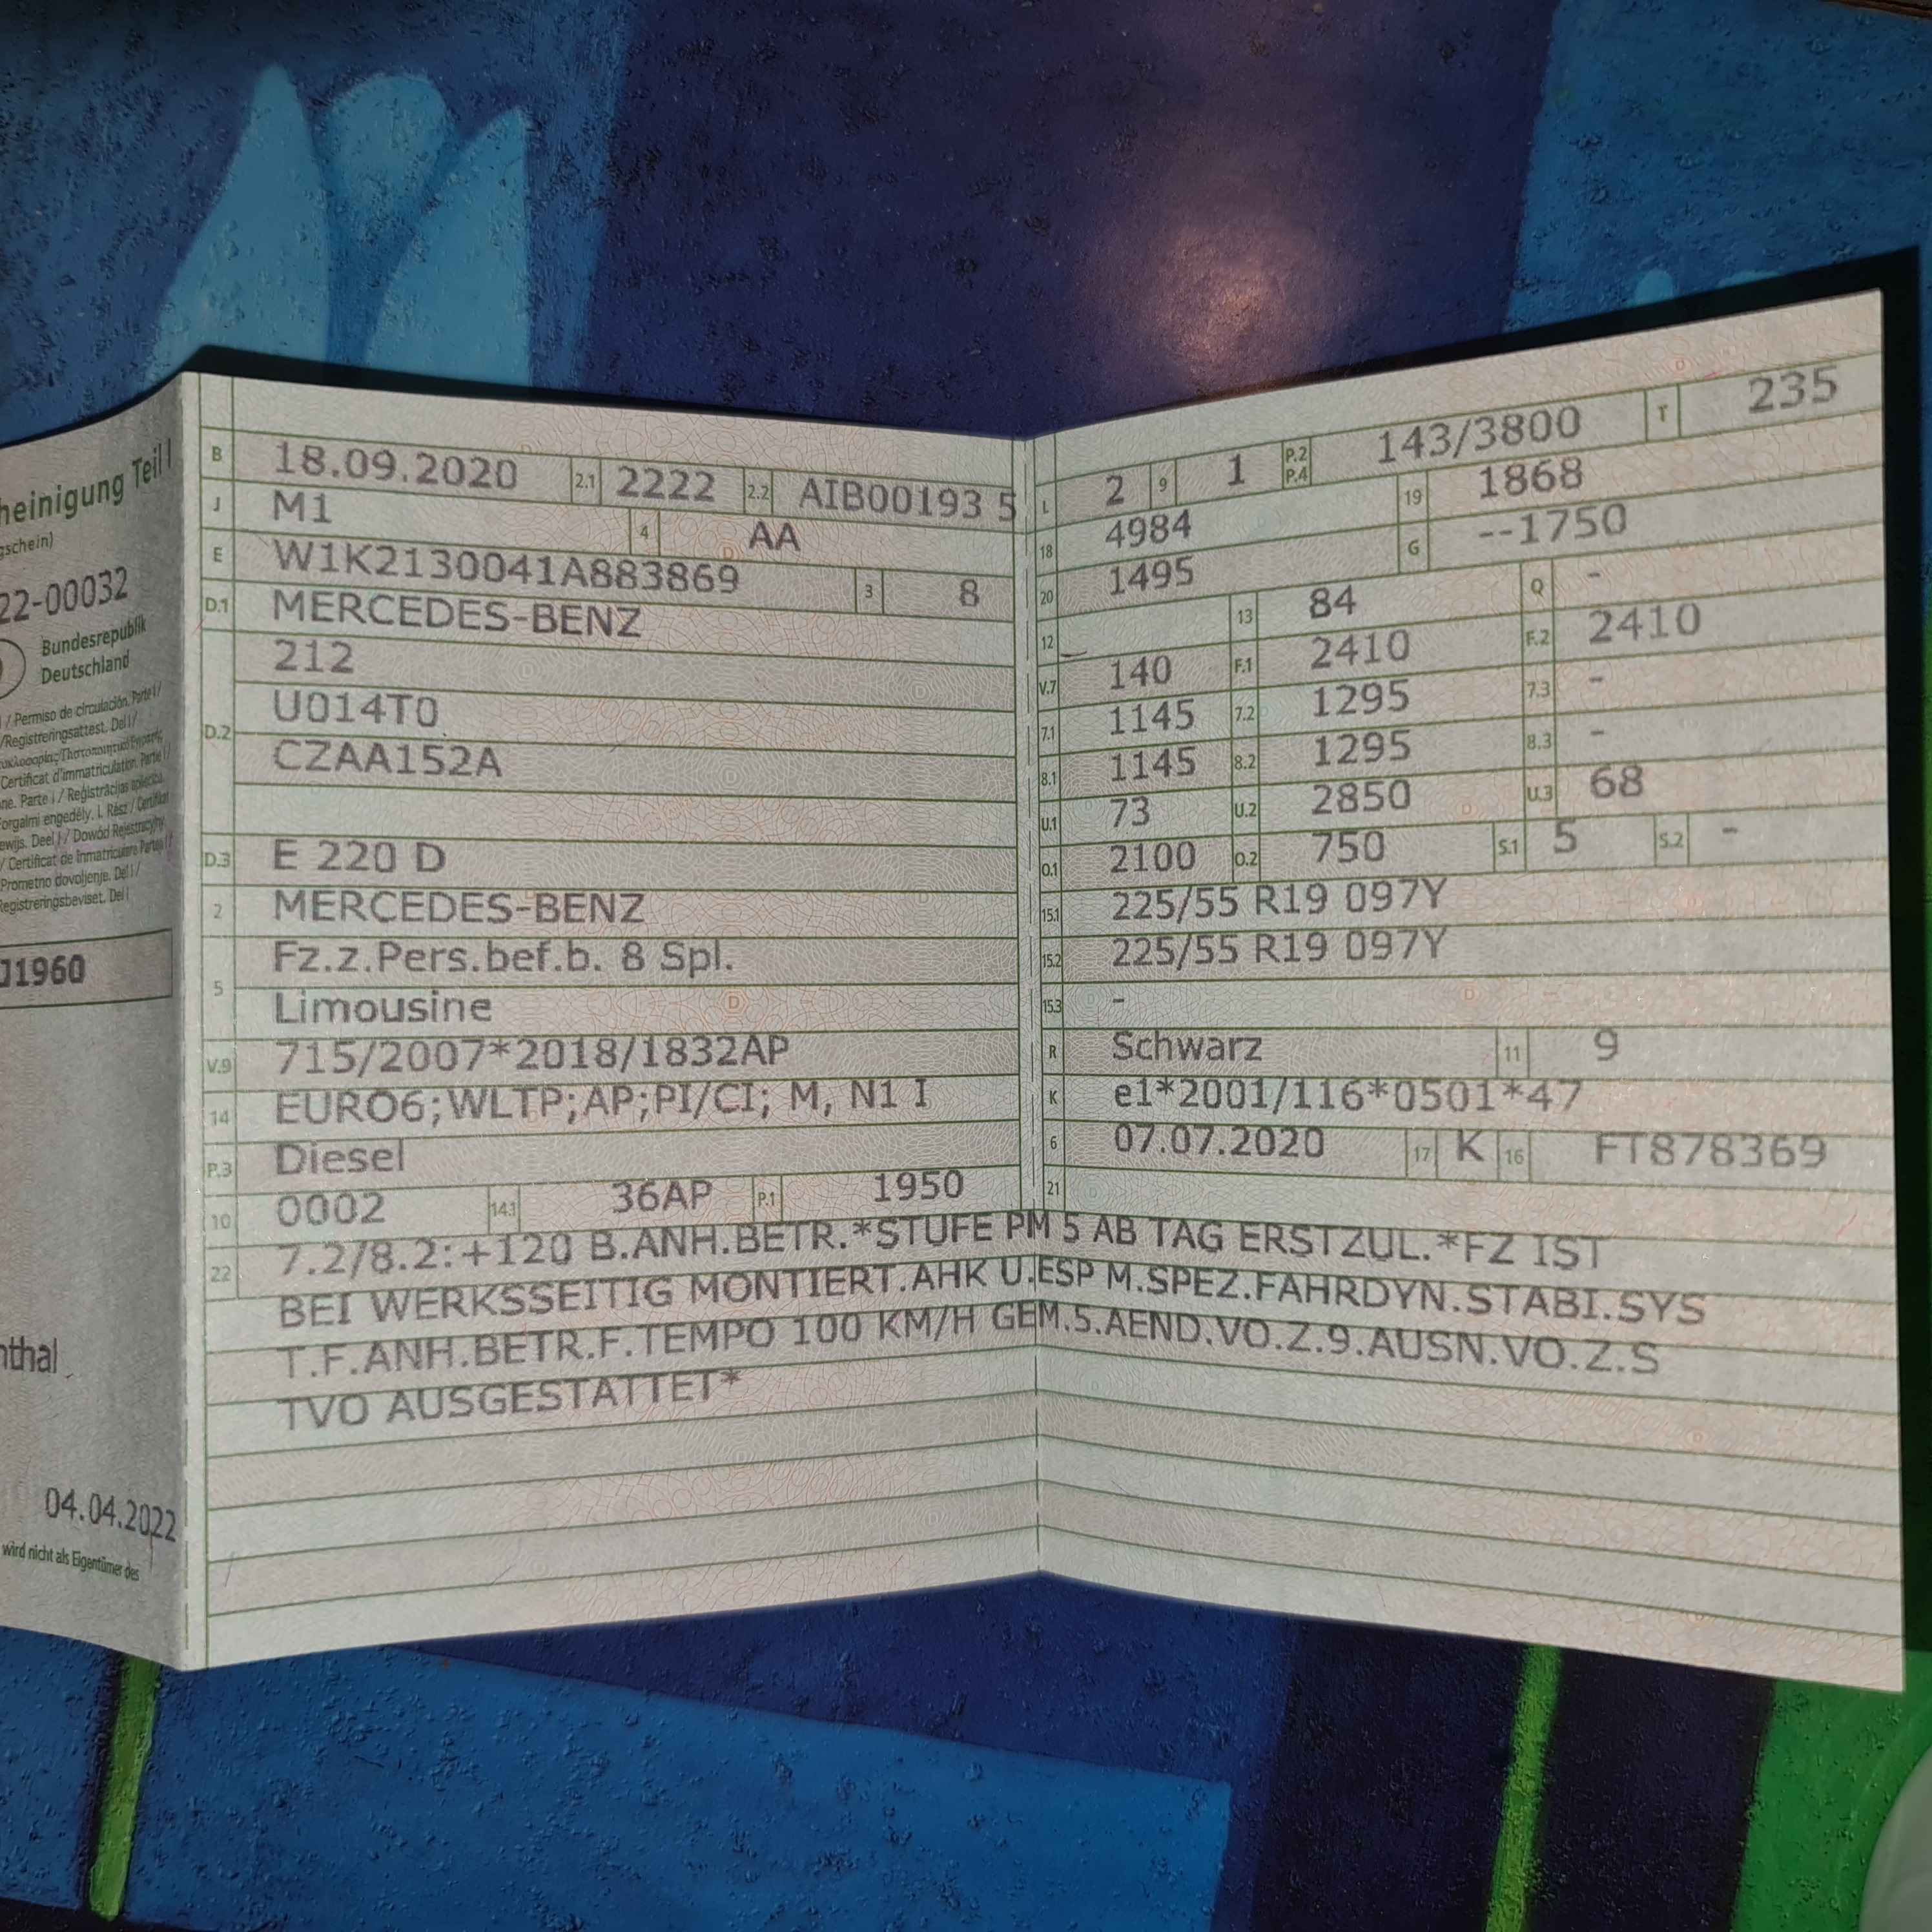 heinigung Teil I
gschein)
22-00032
Bundesrepublik
Deutschland
/ Permiso de circulación. Parte I /
/Registreringsattest. Del I /
Certificat d'immatriculation. Partie I /
ne. Parte I / Reģistrācijas apliecība.
Forgalmi engedély. I. Rész / Certifikat
ewijs. Deel I / Dowód Rejestracyjny
/ Certificat de înmatriculare Partea I /
Prometno dovoljenje. Del I /
Registreringsbeviset. Del I
J1960
nthal
04.04.2022
wird nicht als Eigentümer des
B 18.09.2020 2.1 2222 2.2 AIB00193 5
J M1 4 AA
E W1K2130041A883869 3 8
D.1 MERCEDES-BENZ
212
D.2 U014T0
CZAA152A
D.3 E 220 D
2 MERCEDES-BENZ
5 Fz.z.Pers.bef.b. 8 Spl.
Limousine
V.9 715/2007*2018/1832AP
14 EURO6;WLTP;AP;PI/CI; M, N1 I
P.3 Diesel
10 0002 14.1 36AP P.1 1950
L 2 9 1 P.2 P.4 143/3800 T 235
18 4984 19 1868
20 1495 G --1750
12 - 13 84 Q -
V.7 140 F.1 2410 F.2 2410
7.1 1145 7.2 1295 7.3 -
8.1 1145 8.2 1295 8.3 -
U.1 73 U.2 2850 U.3 68
O.1 2100 O.2 750 S.1 5 S.2 -
15.1 225/55 R19 097Y
15.2 225/55 R19 097Y
15.3 -
R Schwarz 11 9
K e1*2001/116*0501*47
6 07.07.2020 17 K 16 FT878369
21
22 7.2/8.2:+120 B.ANH.BETR.*STUFE PM 5 AB TAG ERSTZUL.*FZ IST
BEI WERKSSEITIG MONTIERT.AHK U.ESP M.SPEZ.FAHRDYN.STABI.SYS
T.F.ANH.BETR.F.TEMPO 100 KM/H GEM.5.AEND.VO.Z.9.AUSN.VO.Z.S
TVO AUSGESTATTET*